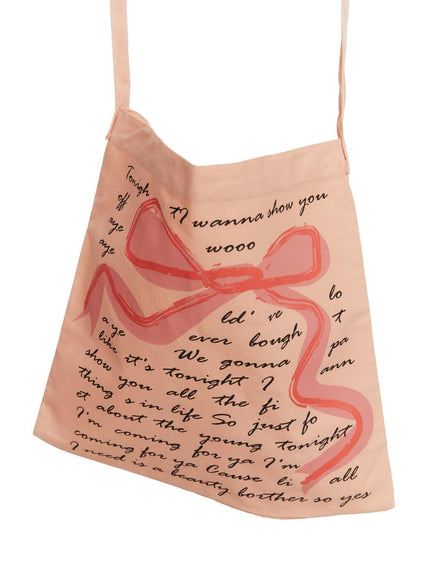 Tonigh tI wanna show you
off
aye wooo
aye
ld' ve lo
a ye ever bough t
like We gonna pa
it's tonight I ann
show you all the fi
thing s in life So just fo
et about the young tonight
I'm coming for ya I'm
coming for ya Cause li all
I need is a beauty borther so yes